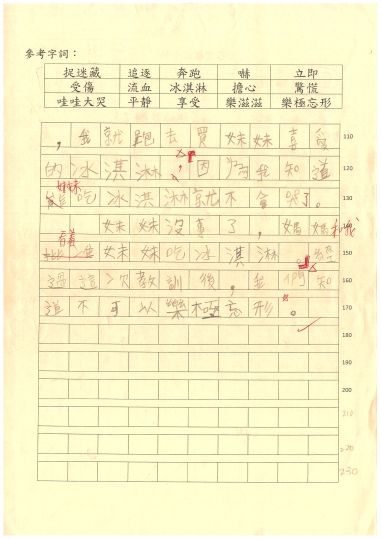 參考字詞：
捉迷藏 追逐 奔跑 嚇 立即
受傷 流血 冰淇淋 擔心 驚慌
哇哇大哭 平靜 享受 樂滋滋 樂極忘形
，我就跑去買妹妹喜愛 110
的冰淇淋，因為我知道 120
妹妹
吃冰淇淋就不會哭了。 130
妹妹沒事了，媽媽和我 140
看着
妹妹吃冰淇淋。經 150
過這次教訓後，我們知 160
道不可以樂極忘形。 170
180
190
200
210
220
230